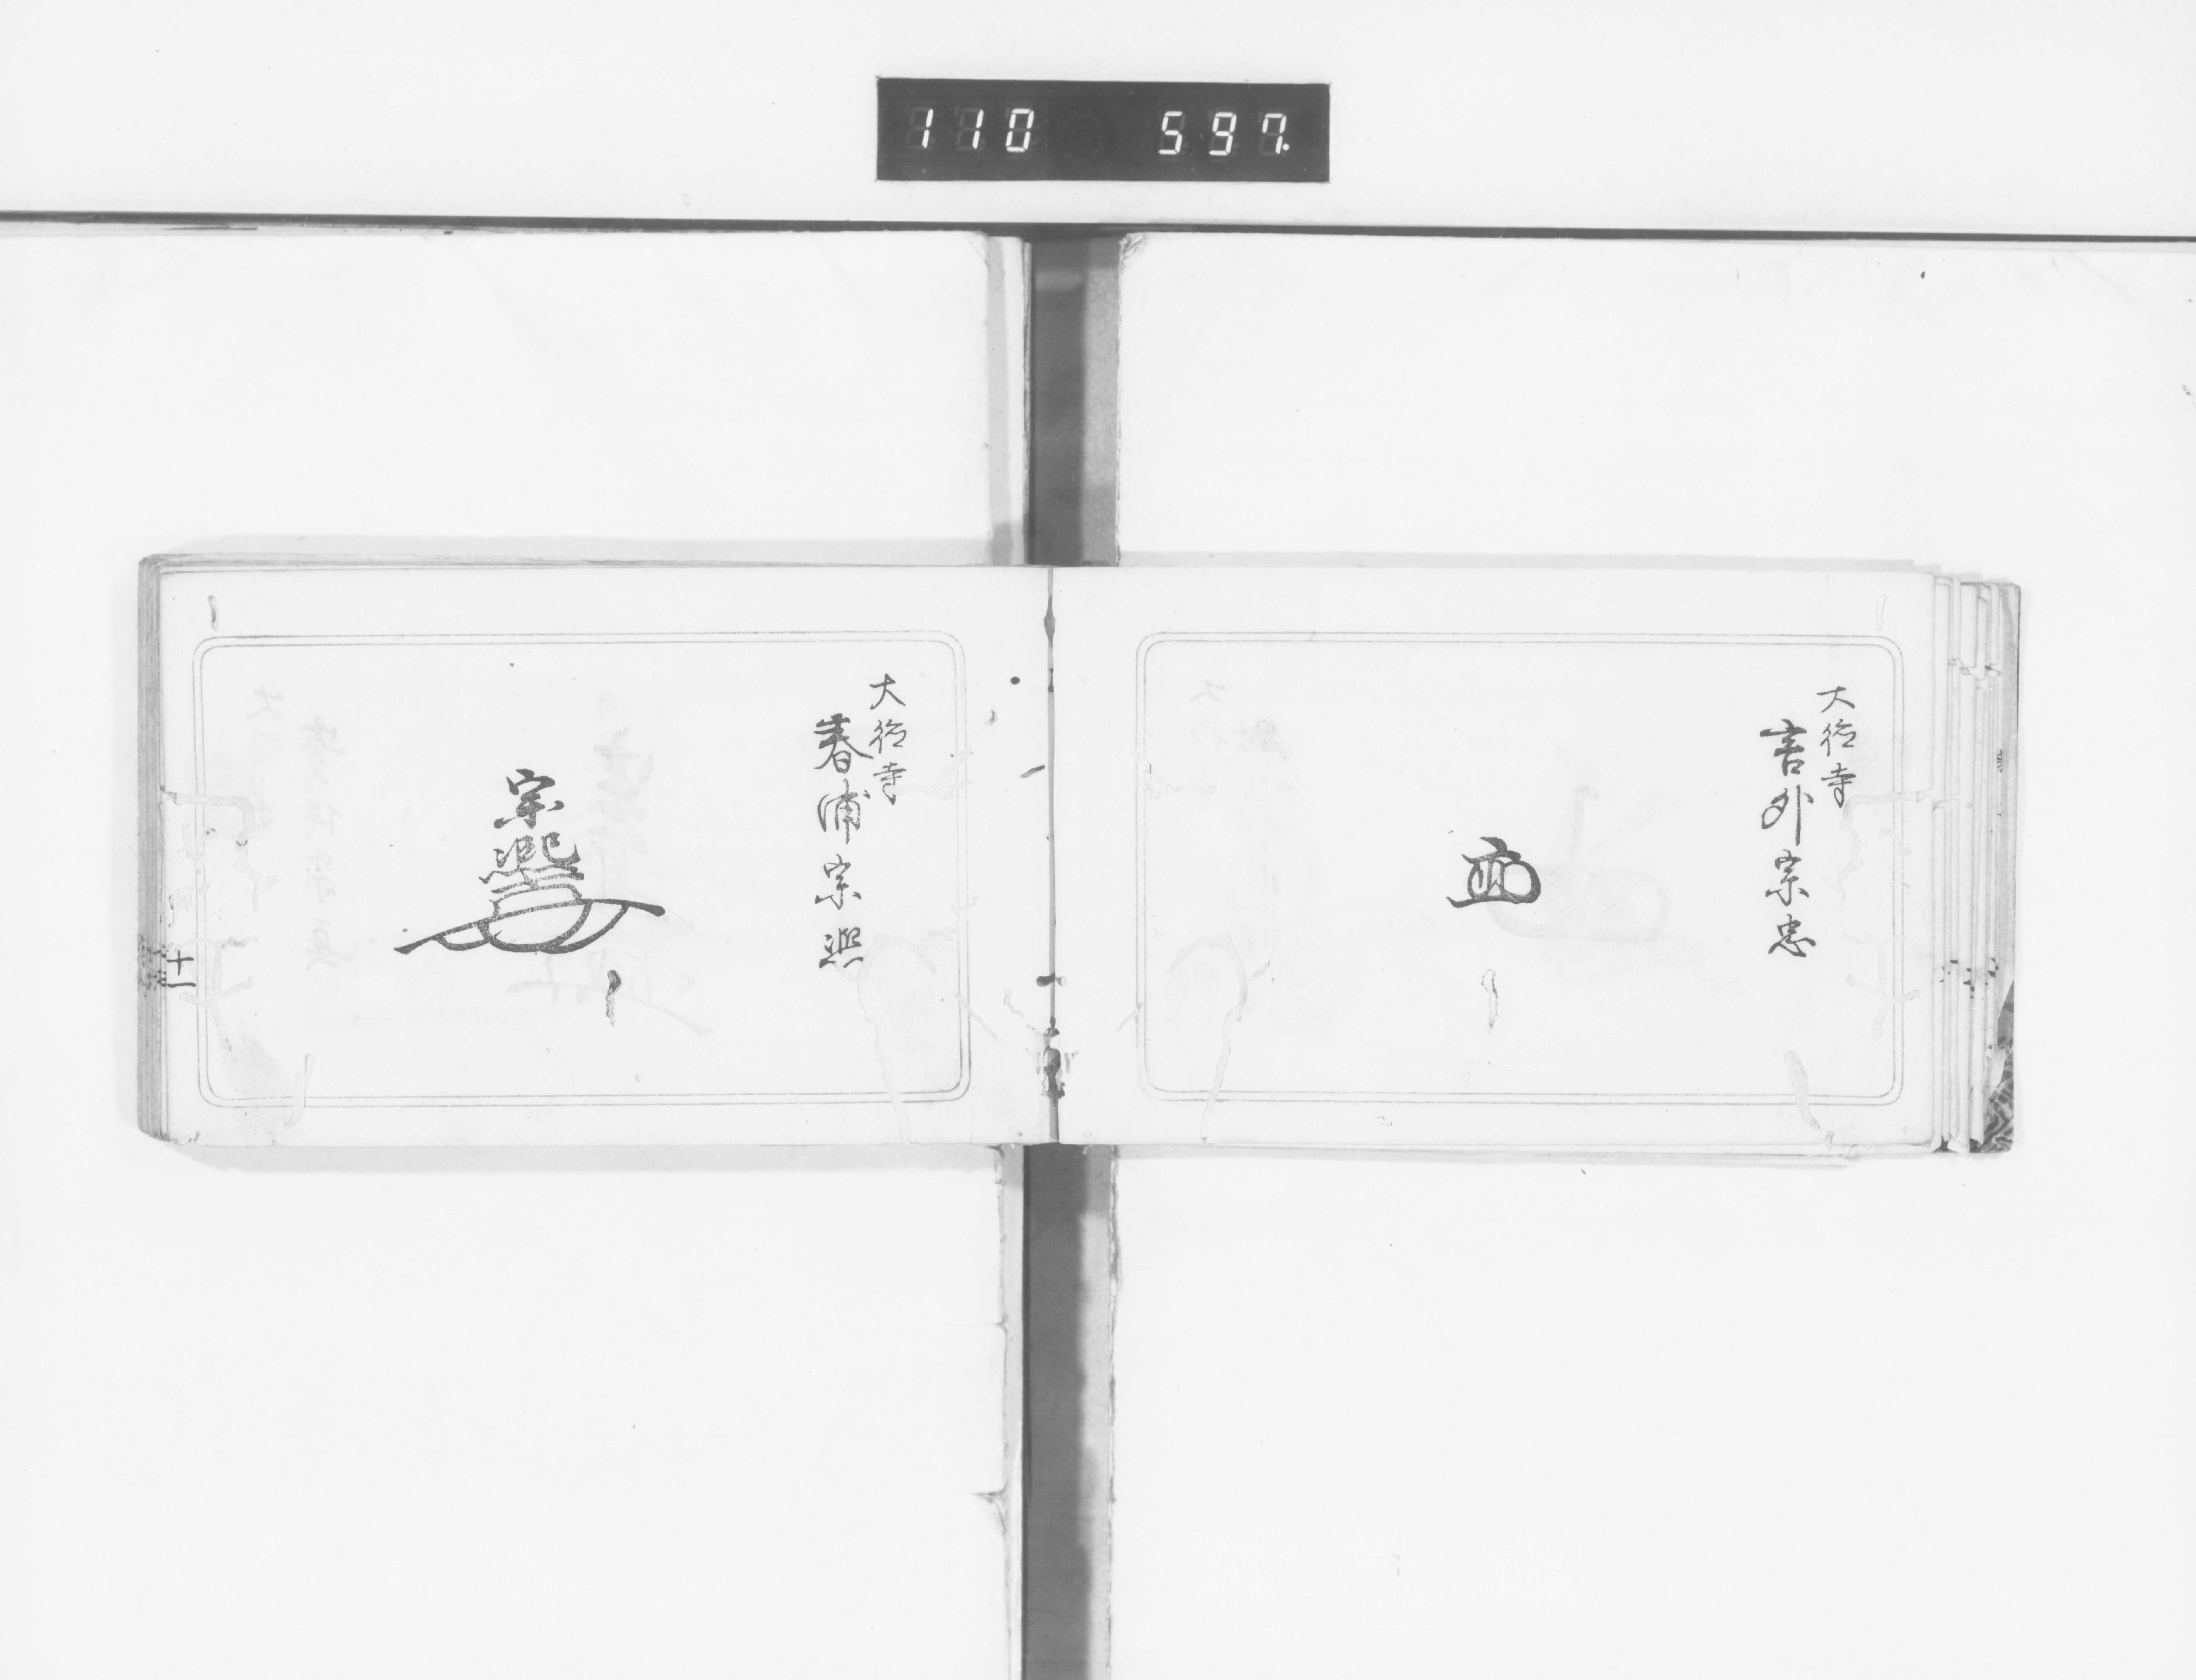 110 597.
大徳寺
言外宗忠
大徳寺
春浦宗熈
宗熈
十一